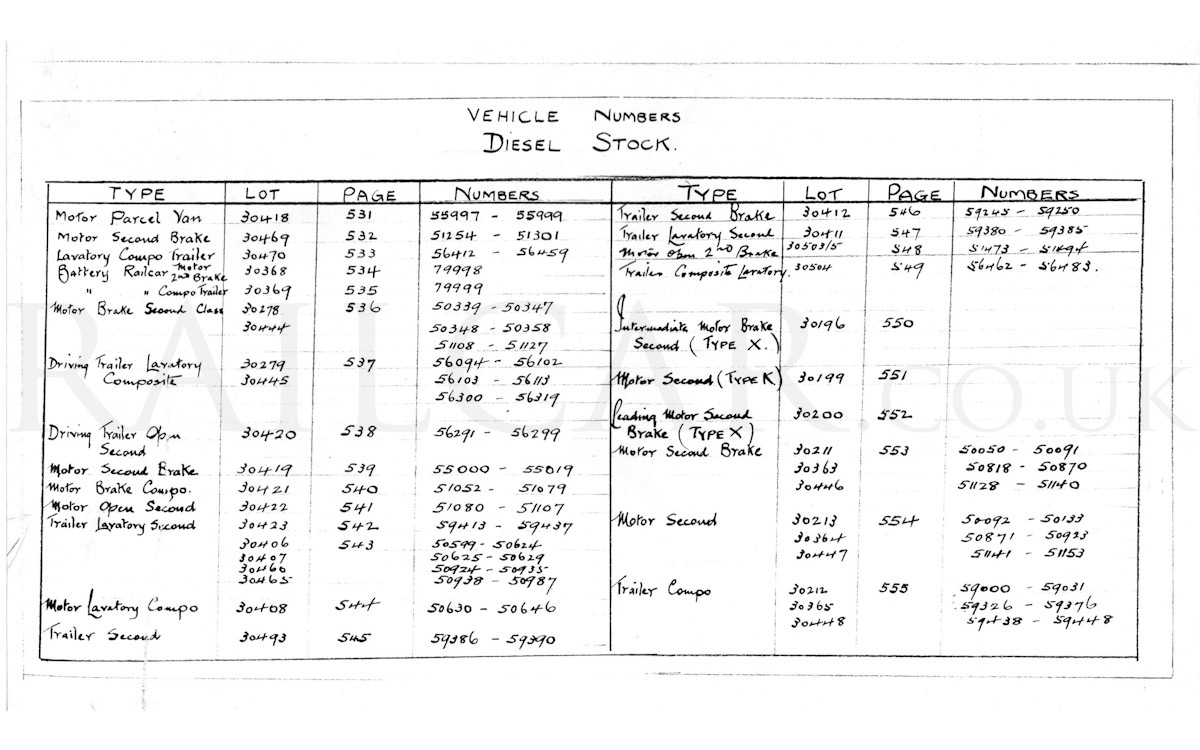 VEHICLE NUMBERS
DIESEL STOCK.
TYPE LOT PAGE NUMBERS
Motor Parcel Van 30418 531 55997 - 55999
Motor Second Brake 30469 532 51254 - 51301
Lavatory Compo Trailer 30470 533 56412 - 56459
Battery Railcar Motor 2nd Brake 30368 534 79998
" " Compo Trailer 30369 535 79999
Motor Brake Second Class 30278 536 50339 - 50347
30444 50348 - 50358
51108 - 51127
Driving Trailer Lavatory 30279 537 56094 - 56102
Composite 30445 56103 - 56113
56300 - 56319
Driving Trailer Open 30420 538 56291 - 56299
Second
Motor Second Brake 30419 539 55000 - 55019
Motor Brake Compo. 30421 540 51052 - 51079
Motor Open Second 30422 541 51080 - 51107
Trailer Lavatory Second 30423 542 59413 - 59437
30406 543 50599 - 50624
30407 50625 - 50629
30460 50924 - 50935
30465 50938 - 50987
Motor Lavatory Compo 30408 544 50630 - 50646
Trailer Second 30493 545 59386 - 59390
TYPE LOT PAGE NUMBERS
Trailer Second Brake 30412 546 59245 - 59250
Trailer Lavatory Second 30411 547 59380 - 59385
Motor Open 2nd Brake 30503/5 548 51473 - 51494
Trailer Composite Lavatory. 30504 549 56462 - 56483.
Intermediate Motor Brake 30196 550
Second (TYPE X.)
Motor Second (TYPE K) 30199 551
Leading Motor Second 30200 552
Brake (TYPE X)
Motor Second Brake 30211 553 50050 - 50091
30363 50818 - 50870
30446 51128 - 51140
Motor Second 30213 554 50092 - 50133
30364 50871 - 50923
30447 51141 - 51153
Trailer Compo 30212 555 59000 - 59031
30365 59326 - 59376
30448 59438 - 59448
RAILCAR.CO.UK